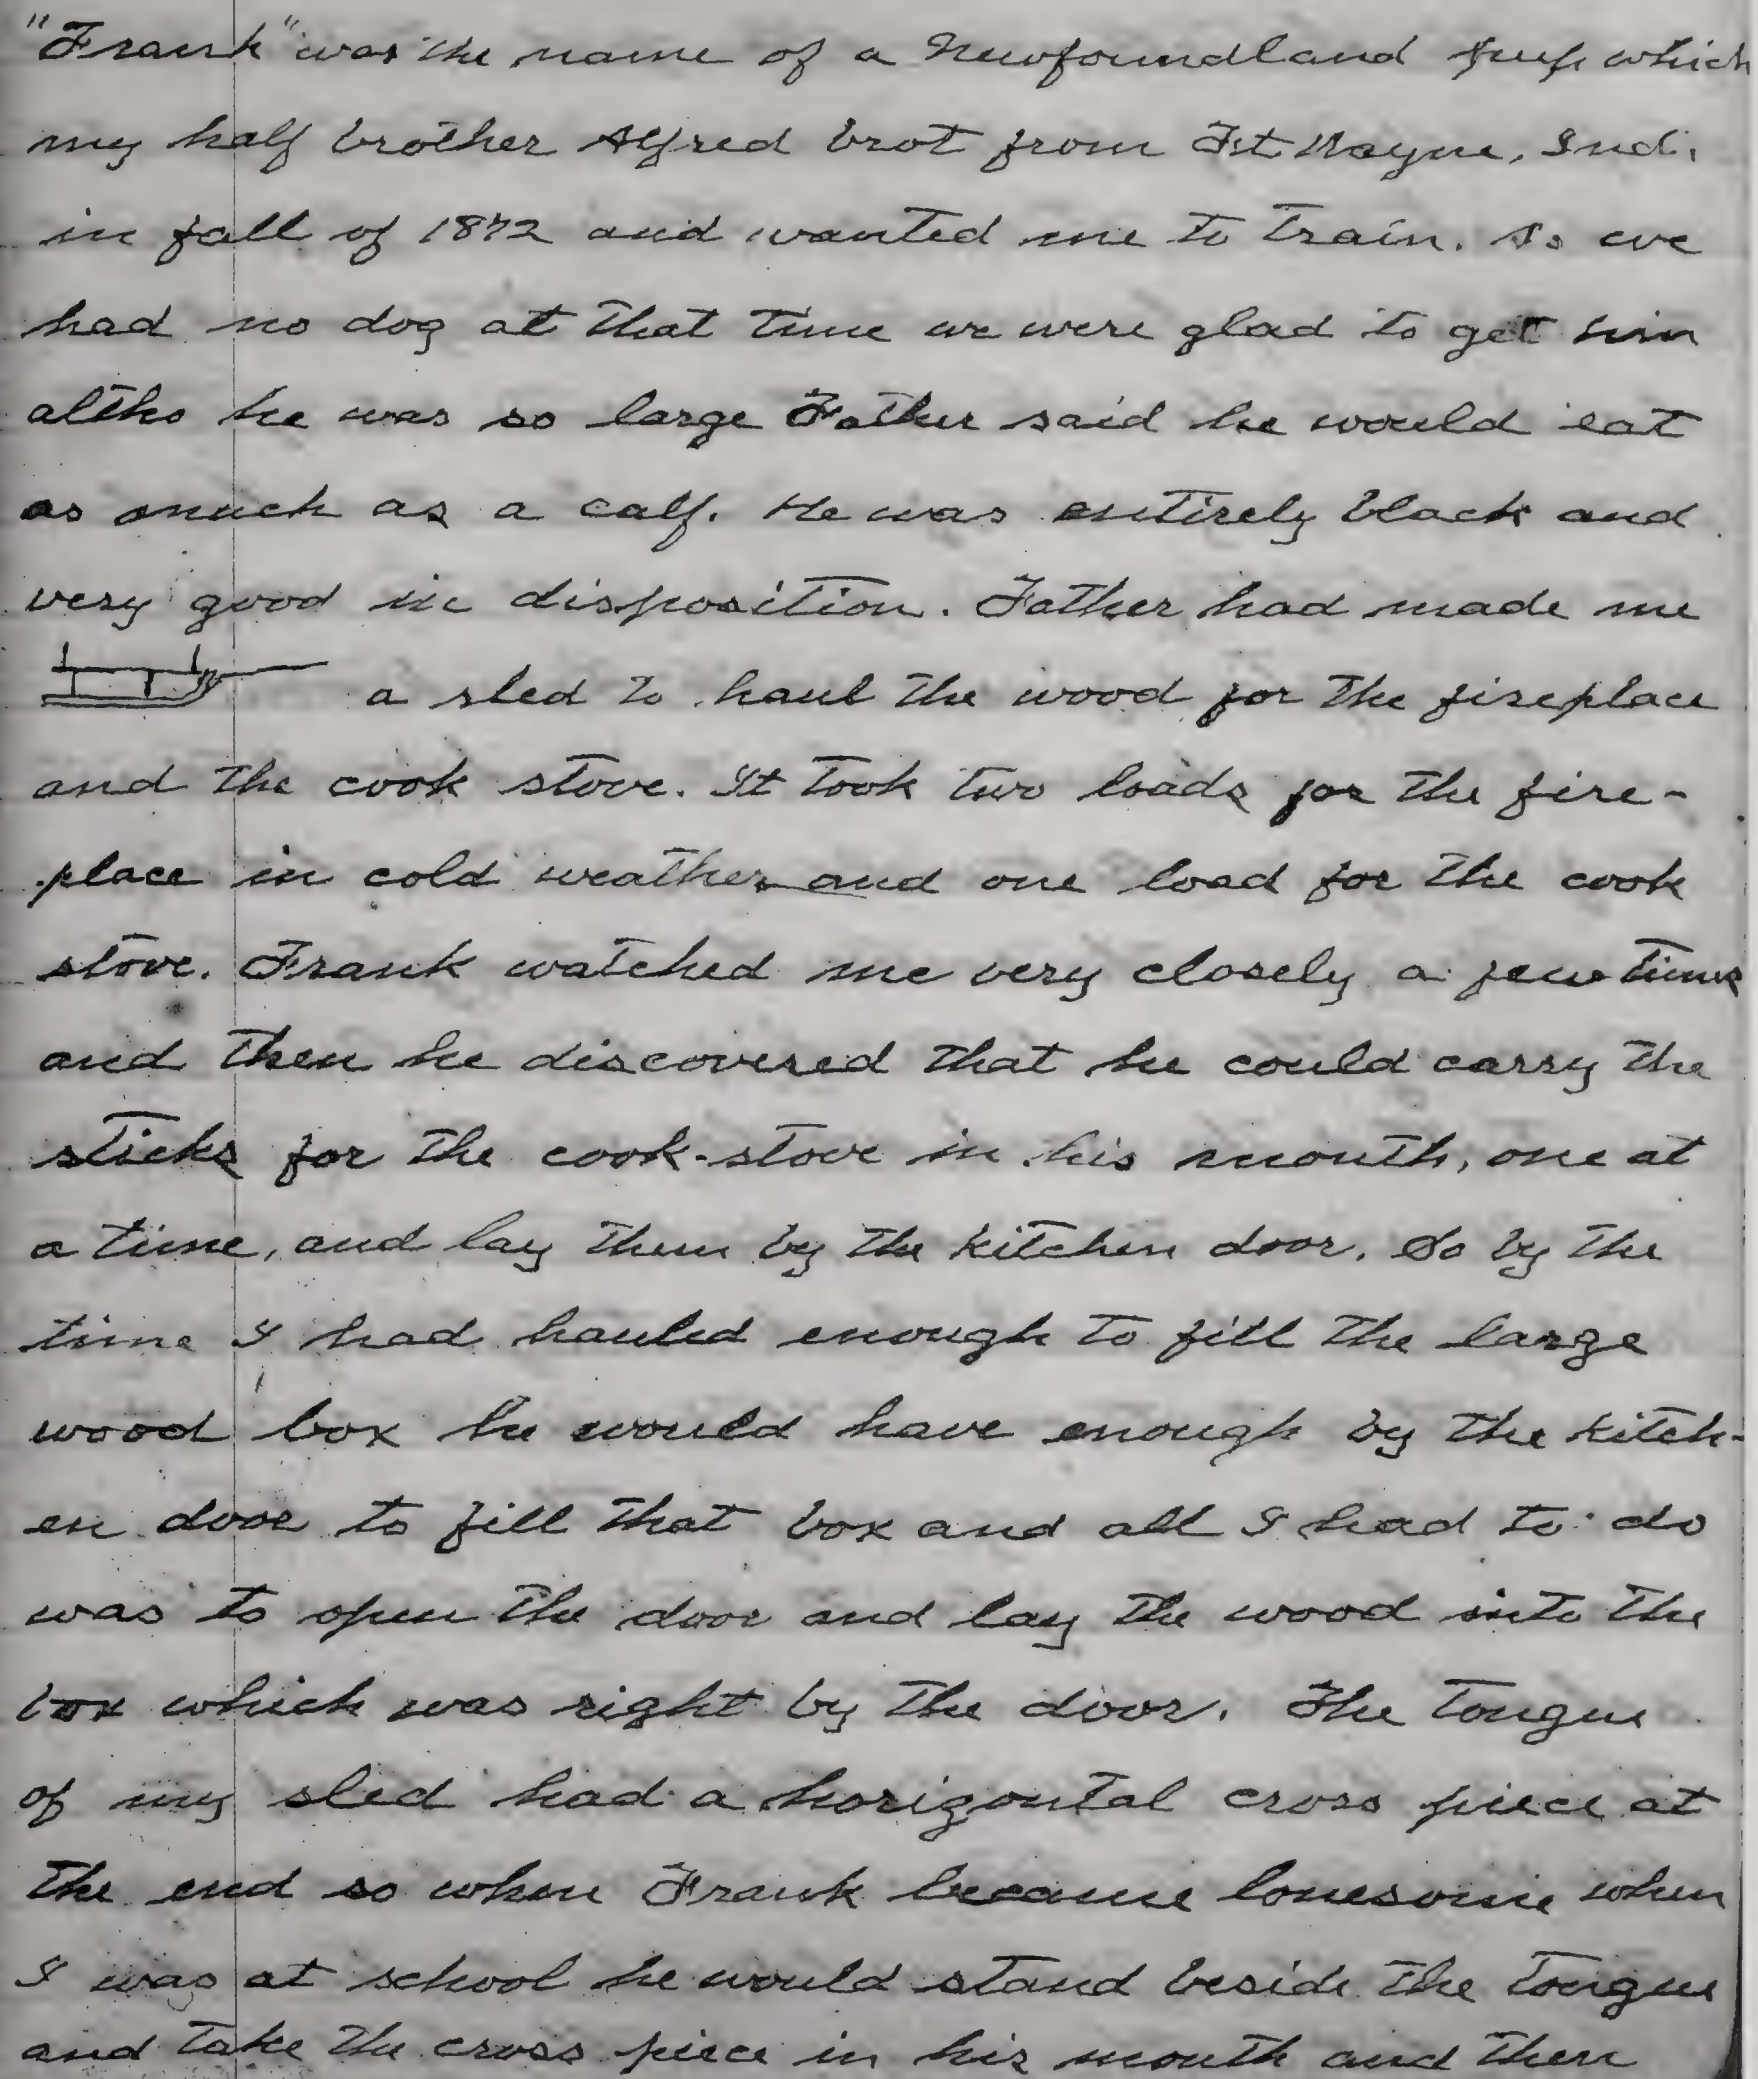 "Frank" was the name of a Newfoundland pup which
my half brother Alfred brot from Ft Wayne, Ind.
in fall of 1872 and wanted me to train. As we
had no dog at that time we were glad to get him
altho he was so large Father said he would eat
as much as a calf. He was entirely black and
very good in disposition. Father had made me
a sled to haul the wood for the fireplace
and the cook stove. It took two loads for the fire-
place in cold weather and one load for the cook
stove. Frank watched me very closely a few times
and then he discovered that he could carry the
sticks for the cook-stove in his mouth, one at
a time, and lay them by the kitchen door. So by the
time I had hauled enough to fill the large
wood box he would have enough by the kitch-
en door to fill that box and all I had to do
was to open the door and lay the wood into the
box which was right by the door. The tongue
of my sled had a horizontal cross piece at
the end so when Frank became lonesome when
I was at school he would stand beside the tongue
and take the cross piece in his mouth and then